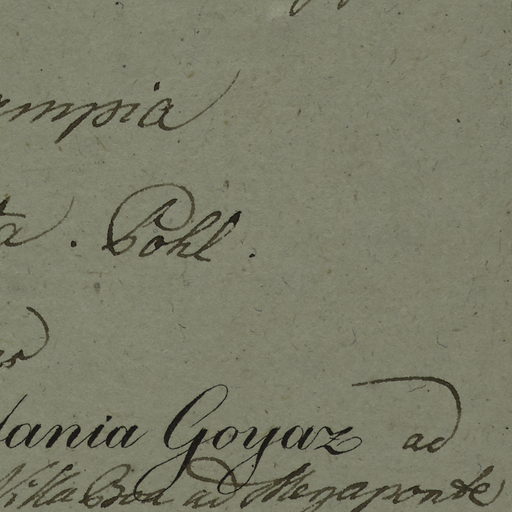 mpia
a. Pohl.
tania Goyaz ad
Villa Boa ad Megaponte